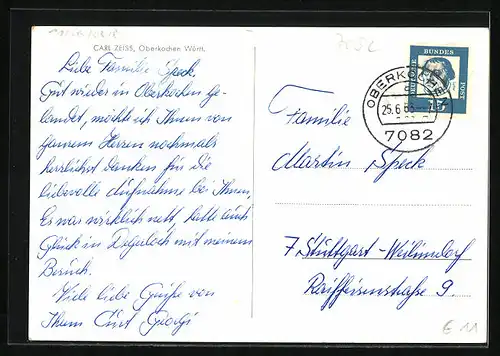 CARL ZEISS, Oberkochen Württ.
Liebe Familie Speck,
Gut wieder in Oberkochen ge-
landet, möcht ich Ihnen von
ganzem Herzen nochmals
herzlichst danken für die
liebevolle Aufnahme bei Ihnen.
Es war wirklich nett, hatte auch
Glück in Degerloch mit meinem
Besuch.
Viele liebe Grüße von
Ihrem Curt Giorgi
DEUTSCHE BUNDESPOST
15
OBERKOCHEN
25.6.63
7082
Familie
Martin Speck
7 Stuttgart-Weilimdorf
Raiffeisenstraße 9.